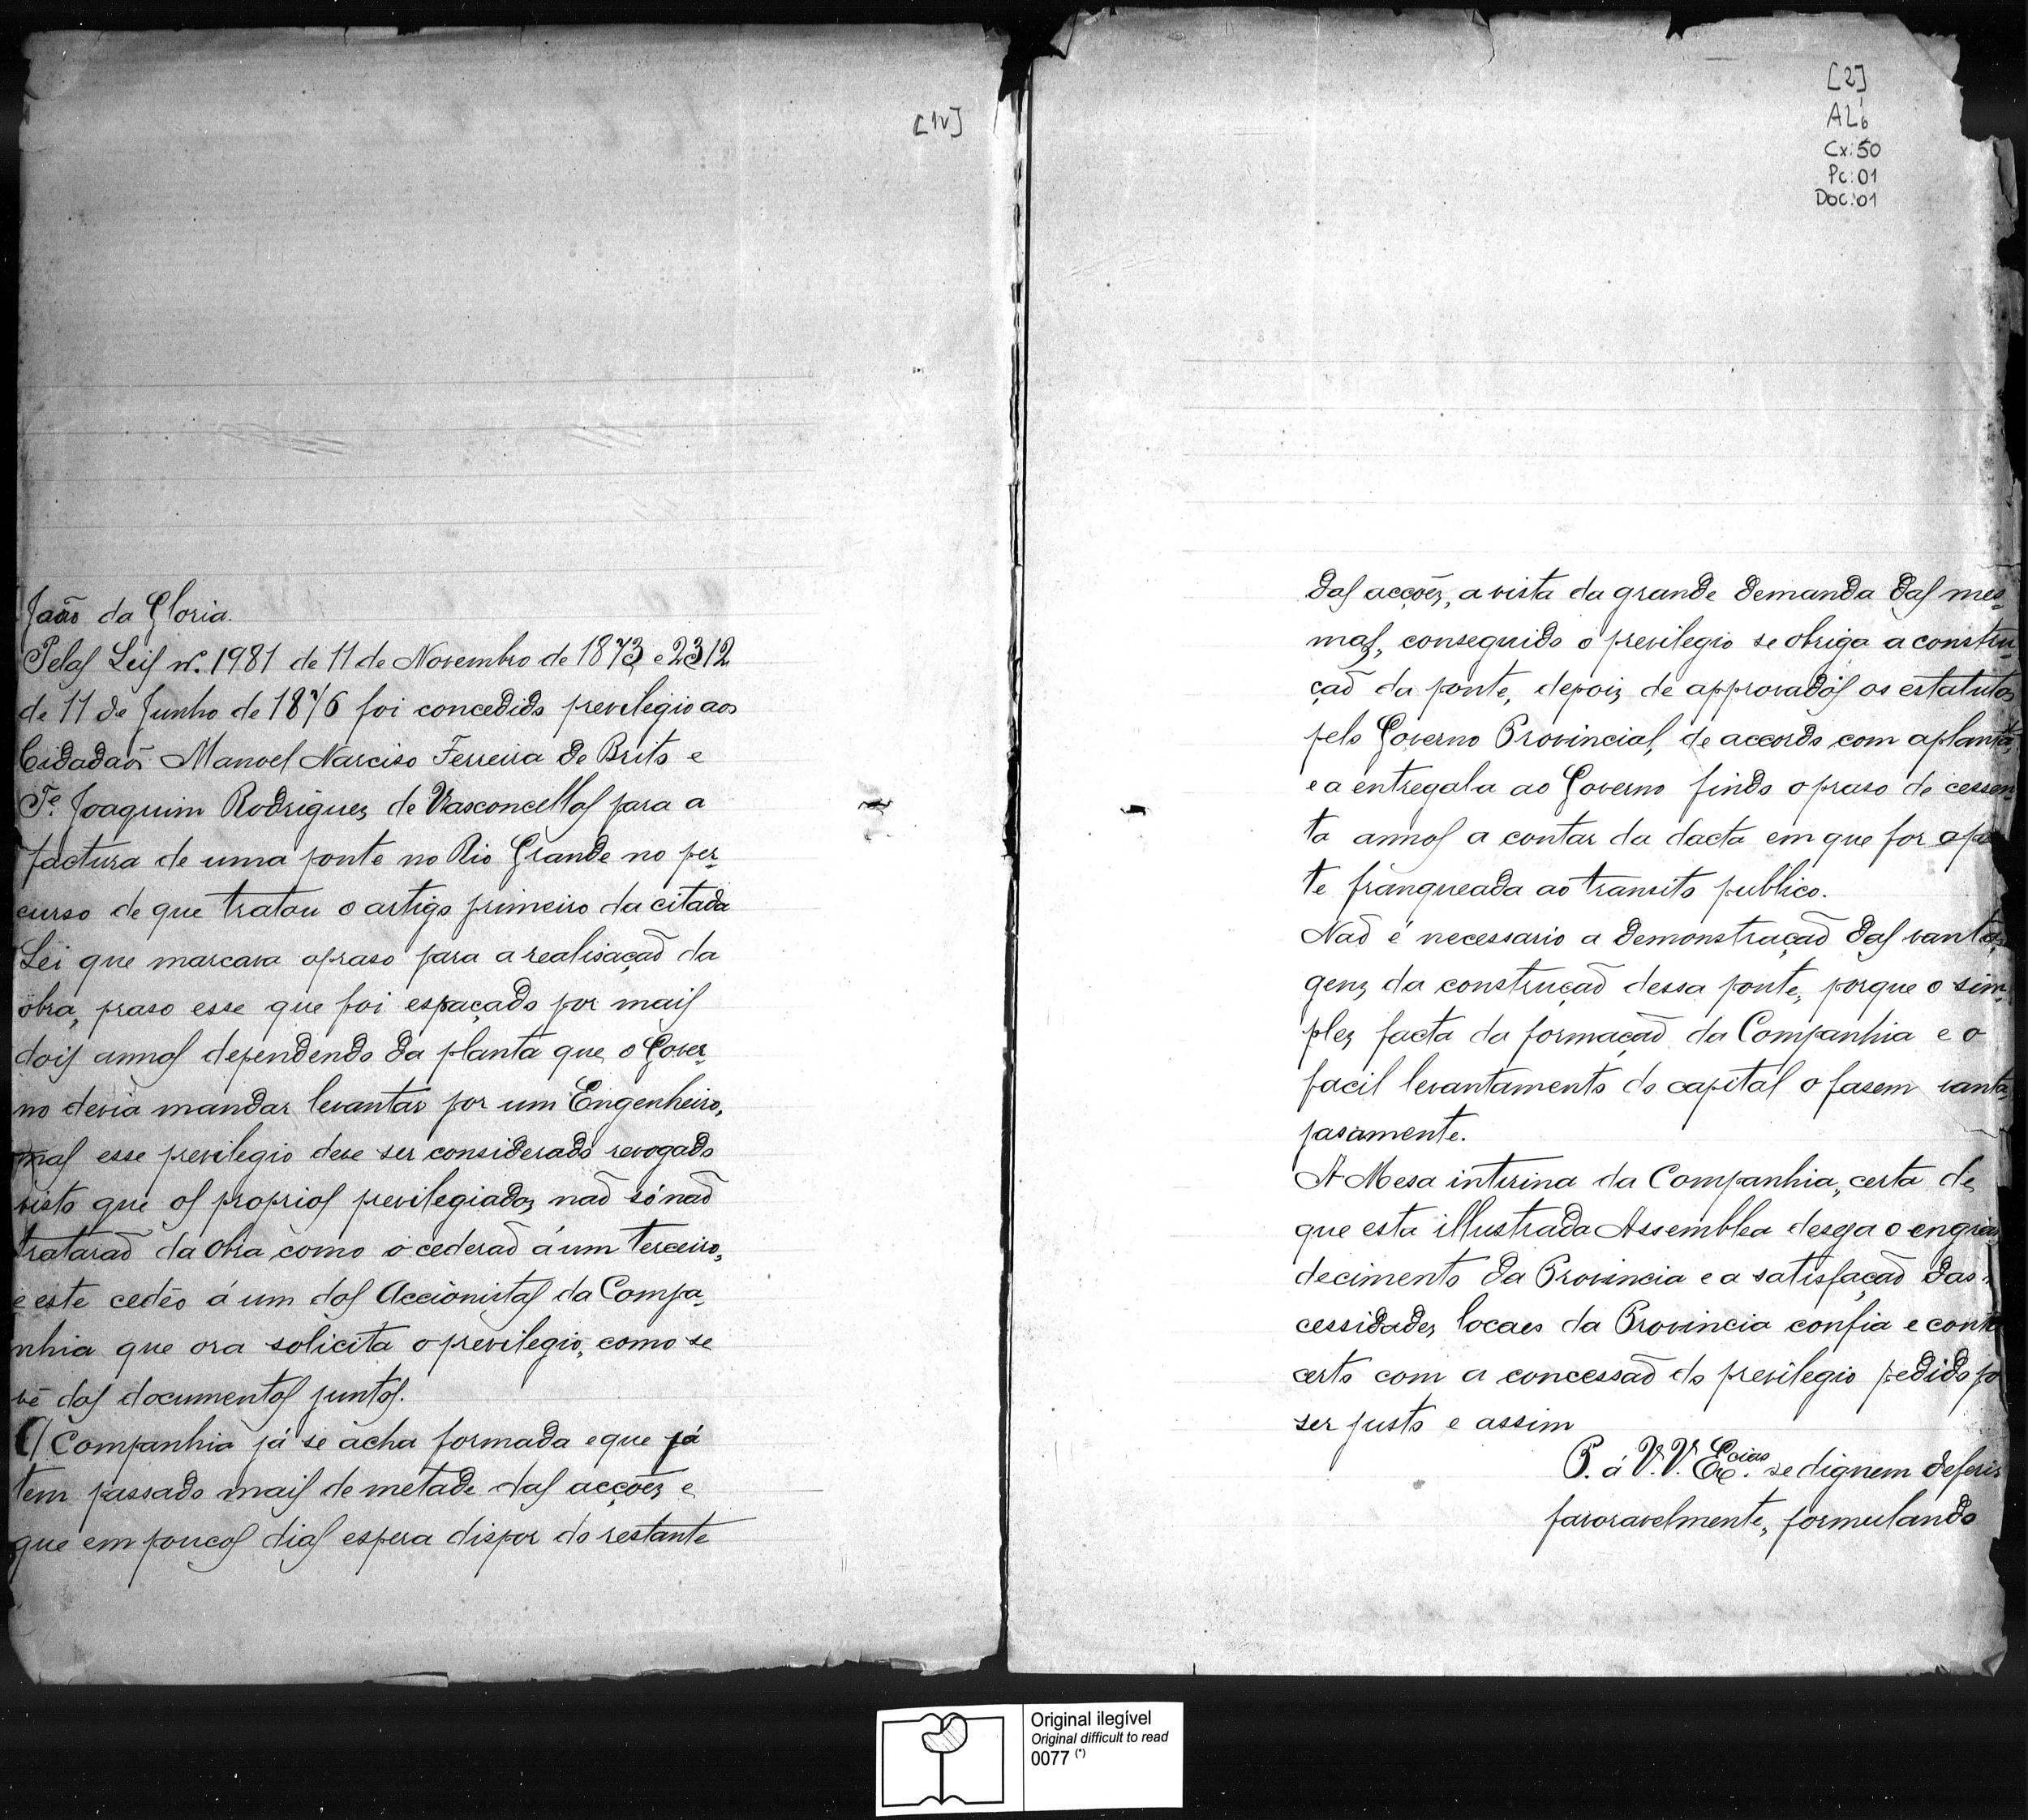 [1v]
João da Gloria.
Pelas Leis nº. 1981 de 11 de Novembro de 1873 e 2312
de 11 de Junho de 1876 foi concedido previlegio aos
Cidadaõs Manoel Narciso Ferreira de Brito e
Te. Joaquim Rodrigues de Vasconcellos para a
factura de uma ponte no Rio Grande no per-
curso de que tratou o artigo primeiro da citada
Lei que marcava o praso para a realisaçaõ da
obra, praso esse que foi espaçado por mais
dois annos dependendo da planta que o Gover-
no devia mandar levantar por um Engenheiro,
mas esse previlegio deve ser considerado revogado
visto que os proprios previlegiados naõ só naõ
trataraõ da obra como o cederaõ á um terceiro,
e este cedêo á um dos Accionistas da Compa-
nhia que ora solicita o previlegio, como se
vê dos documentos juntos.
A Companhia já se acha formada e que já
tem passado mais de metade das acções e
que em poucos dias espera dispor do restante
[2]
AL6
Cx: 50
Pc: 01
Doc: 01
das acções, a vista da grande demanda das mes-
mas, conseguido o previlegio se obriga a constru-
çaõ da ponte, depois de approvados os estatutos
pelo Governo Provincial, de accordo com a planta,
e a entregala ao Governo findo o praso de cessen-
ta annos a contar da dacta em que for a po
te franqueada ao transito publico.
Naõ é necessario a demonstraçaõ das vanta-
gens da construcçaõ dessa ponte, porque o sim-
ples facto da formaçaõ da Companhia e o
facil levantamento do capital o fasem vanta-
josamente.
A Mesa interina da Companhia, certa de
que esta illustrada Assemblea deseja o engran
decimento da Provincia e a satisfaçaõ das
cessidades locaes da Provincia confia e conta
certo com a concessaõ do previlegio pedido po
ser justo e assim
P. á V.V. Excias. se dignem deferir
favoravelmente, formulando
Original ilegível
Original difficult to read
0077 (*)